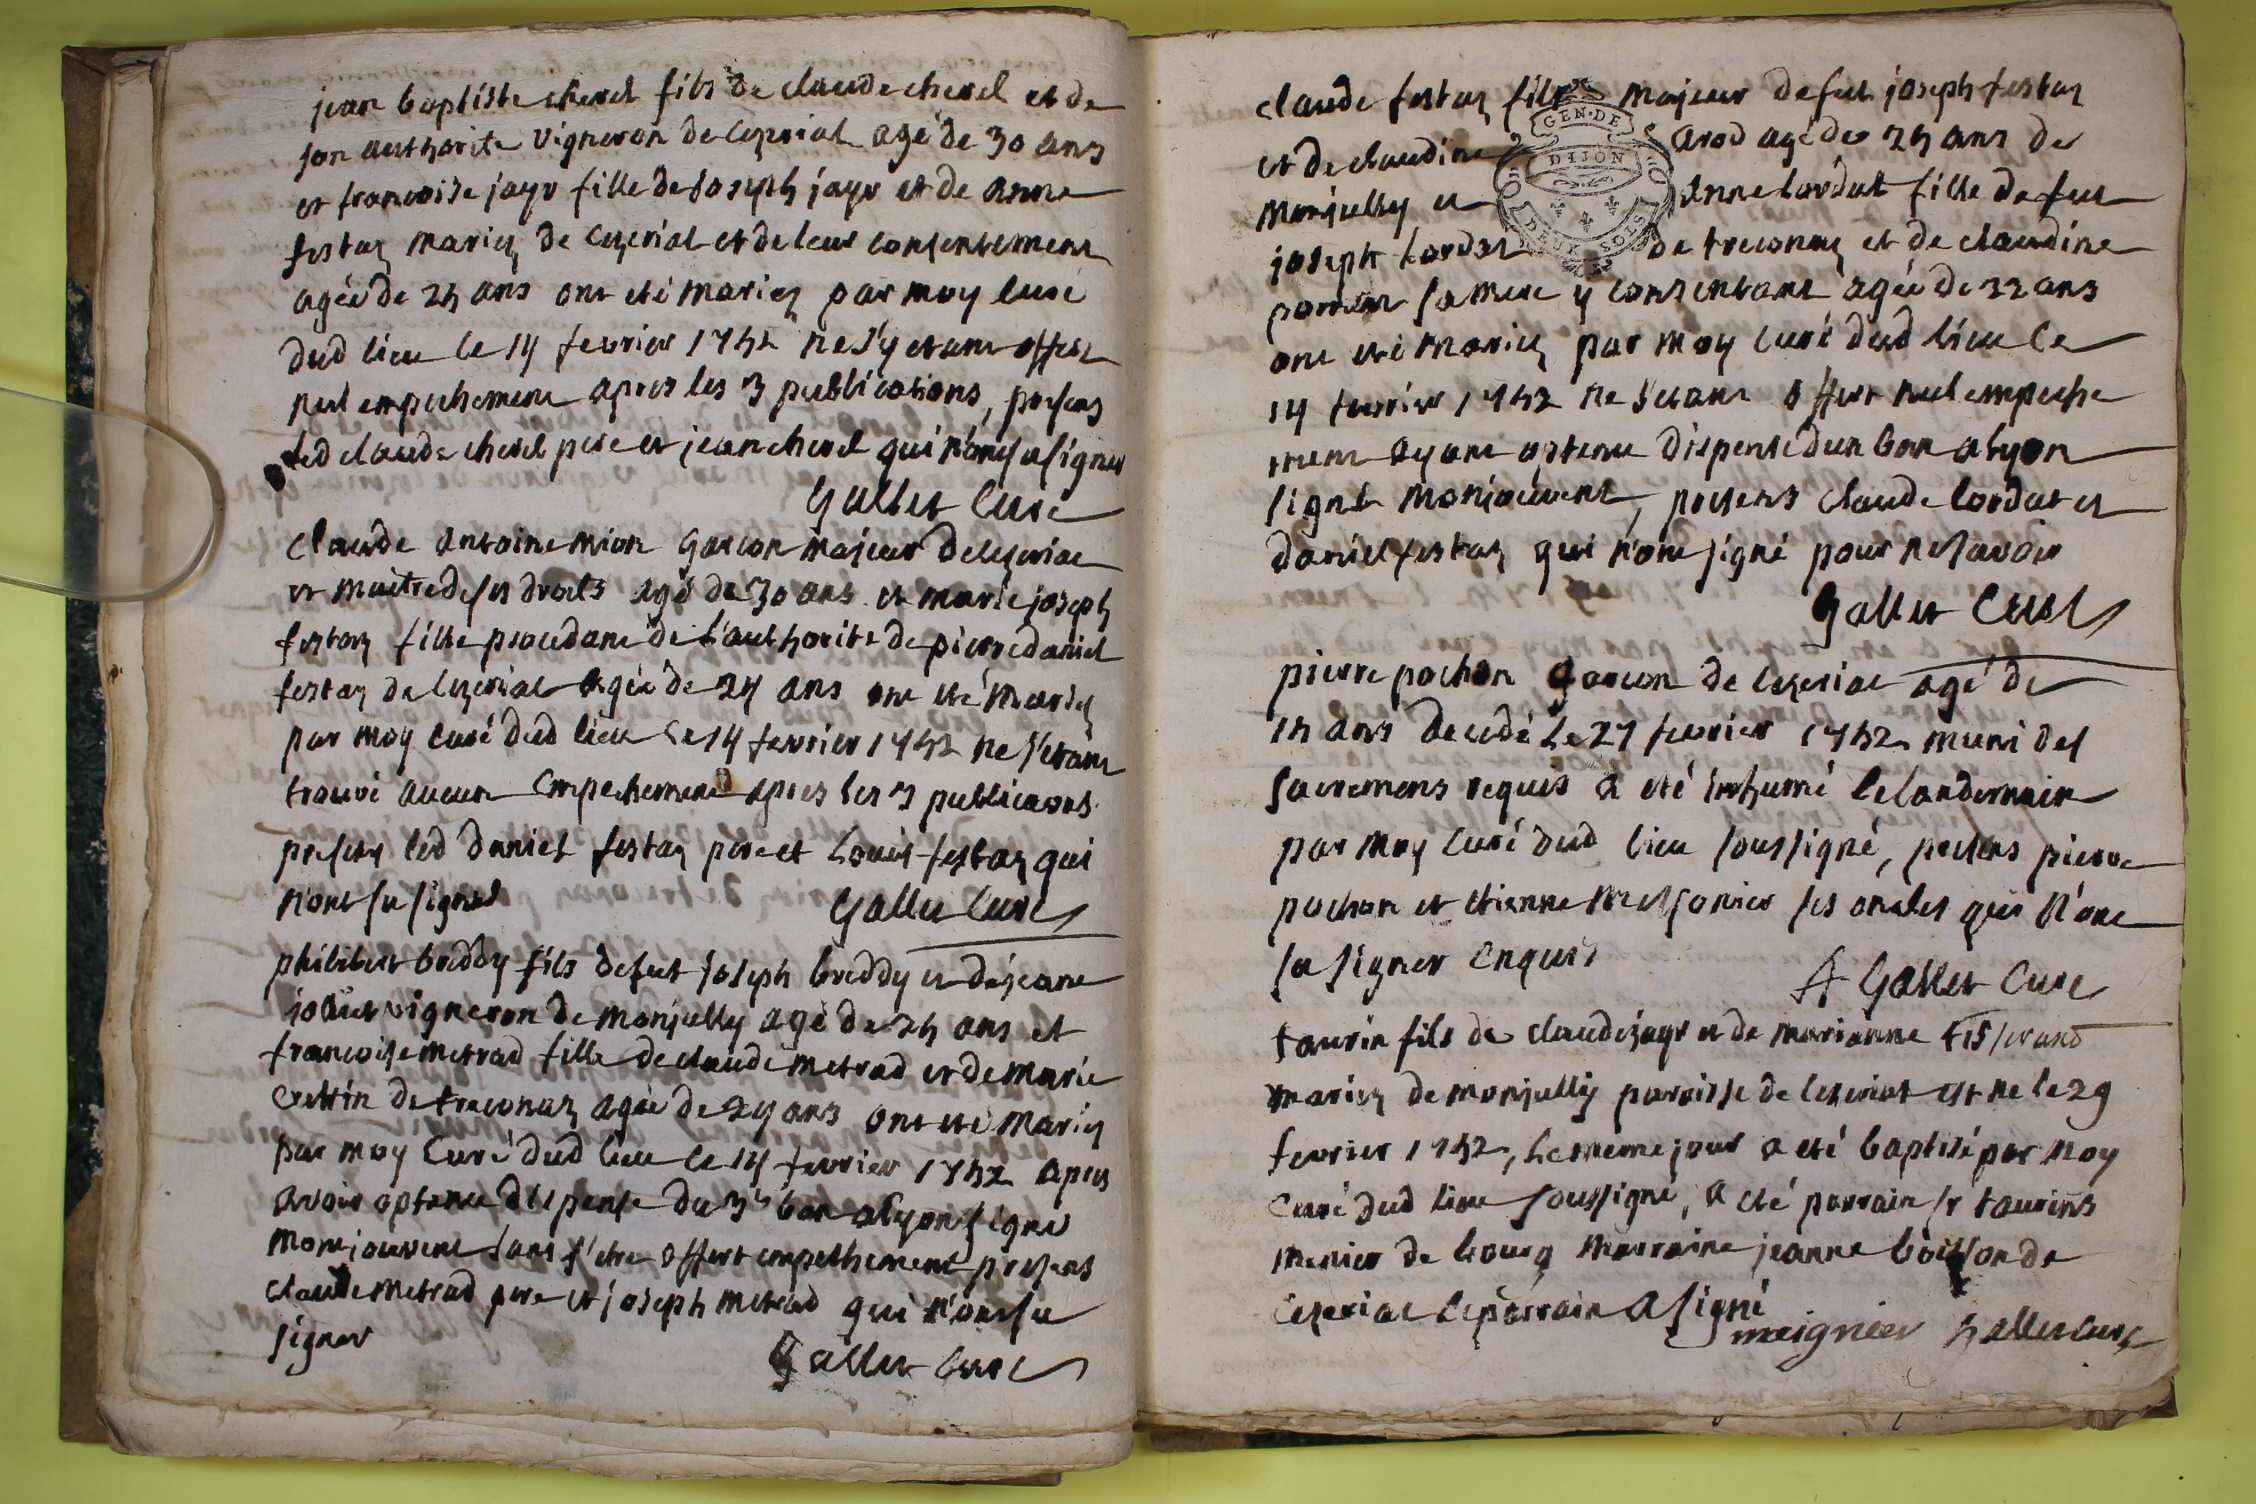 jean baptiste chevel fils de claude chevel et de
son authorité vigneron de ceyseriat agé de 30 ans
et francoise jayr fille de joseph jayr et de anne
festaz mariez de ceyseriat et de leur consentement
agée de 25 ans ont eté mariez par moy curé
dud lieu le 14 fevrier 1752 ne s'y etant offert
nul empechement apres les 3 publications, presens
led claude chevel pere et jean chevel qui n'ont su signer
Gallet Curé
Claude antoine mion garcon majeur de ceseriat
et maitre de ses droits agé de 30 ans et marie joseph
festaz fille procedant de l'authorité de pierre daniel
festaz de ceseriat agée de 24 ans ont eté mariez
par moy curé dud lieu le 14 fevrier 1752 ne s'etant
trouvé aucun empechement apres les 3 publicaons
presens led daniel festaz pere et Louis festaz qui
n'ont su signer Gallet Curé
philibert breddy fils de feut joseph breddy et de jeane
vigneron de monjully agé de 25 ans et
francoise metrad fille de claude metrad et de marie
de treconaz agée de 24 ans ont eté mariez
par moy Curé dud lieu le 14 fevrier 1752 apres
avoir optenu dispense du 3e ban a Lyon signé
monjouvent sans s'etre offert empechement presens
claude metrad pere et joseph metrad qui n'ont su
signer
Gallet Curé
claude festaz fils majeur de feut joseph festaz
et de claudine arod agé de 25 ans de
Monjully et anne cordat fille de feut
joseph cordat de treconaz et de claudine
sa mere y consentant agée de 22 ans
ont eté mariez par moy curé dud lieu le
14 fevrier 1752 ne s'etant offert nul empeche
ment ayant optenu dispense d'un ban a Lyon
signé monjouvent, presens claude cordat et
daniel festaz qui n'ont signé pour ne savoir
Gallet Curé
GEN·DE
DIJON
DEUX SOLS
pierre pochon garcon de ceseriat agé de
15 ans decedé le 27 fevrier 1752 muni des
sacremens requis à eté inhumé le landemain
par moy curé dud lieu soussigné, presens pierre
pochon et etienne messonier ses oncles qui n'ont
su signer enquis
Gallet Curé
taurin fils de claude jayr et de marianne tisserand
mariez de monjully paroisse de ceseriat est ne le 29
fevrier 1752, le meme jour a eté baptisé par moy
Curé dud lieu soussigné, a eté parrain sr taurins
menier de bourg marraine jeanne boisson de
ceseriat le parrain a signé
meignier Gallet curé